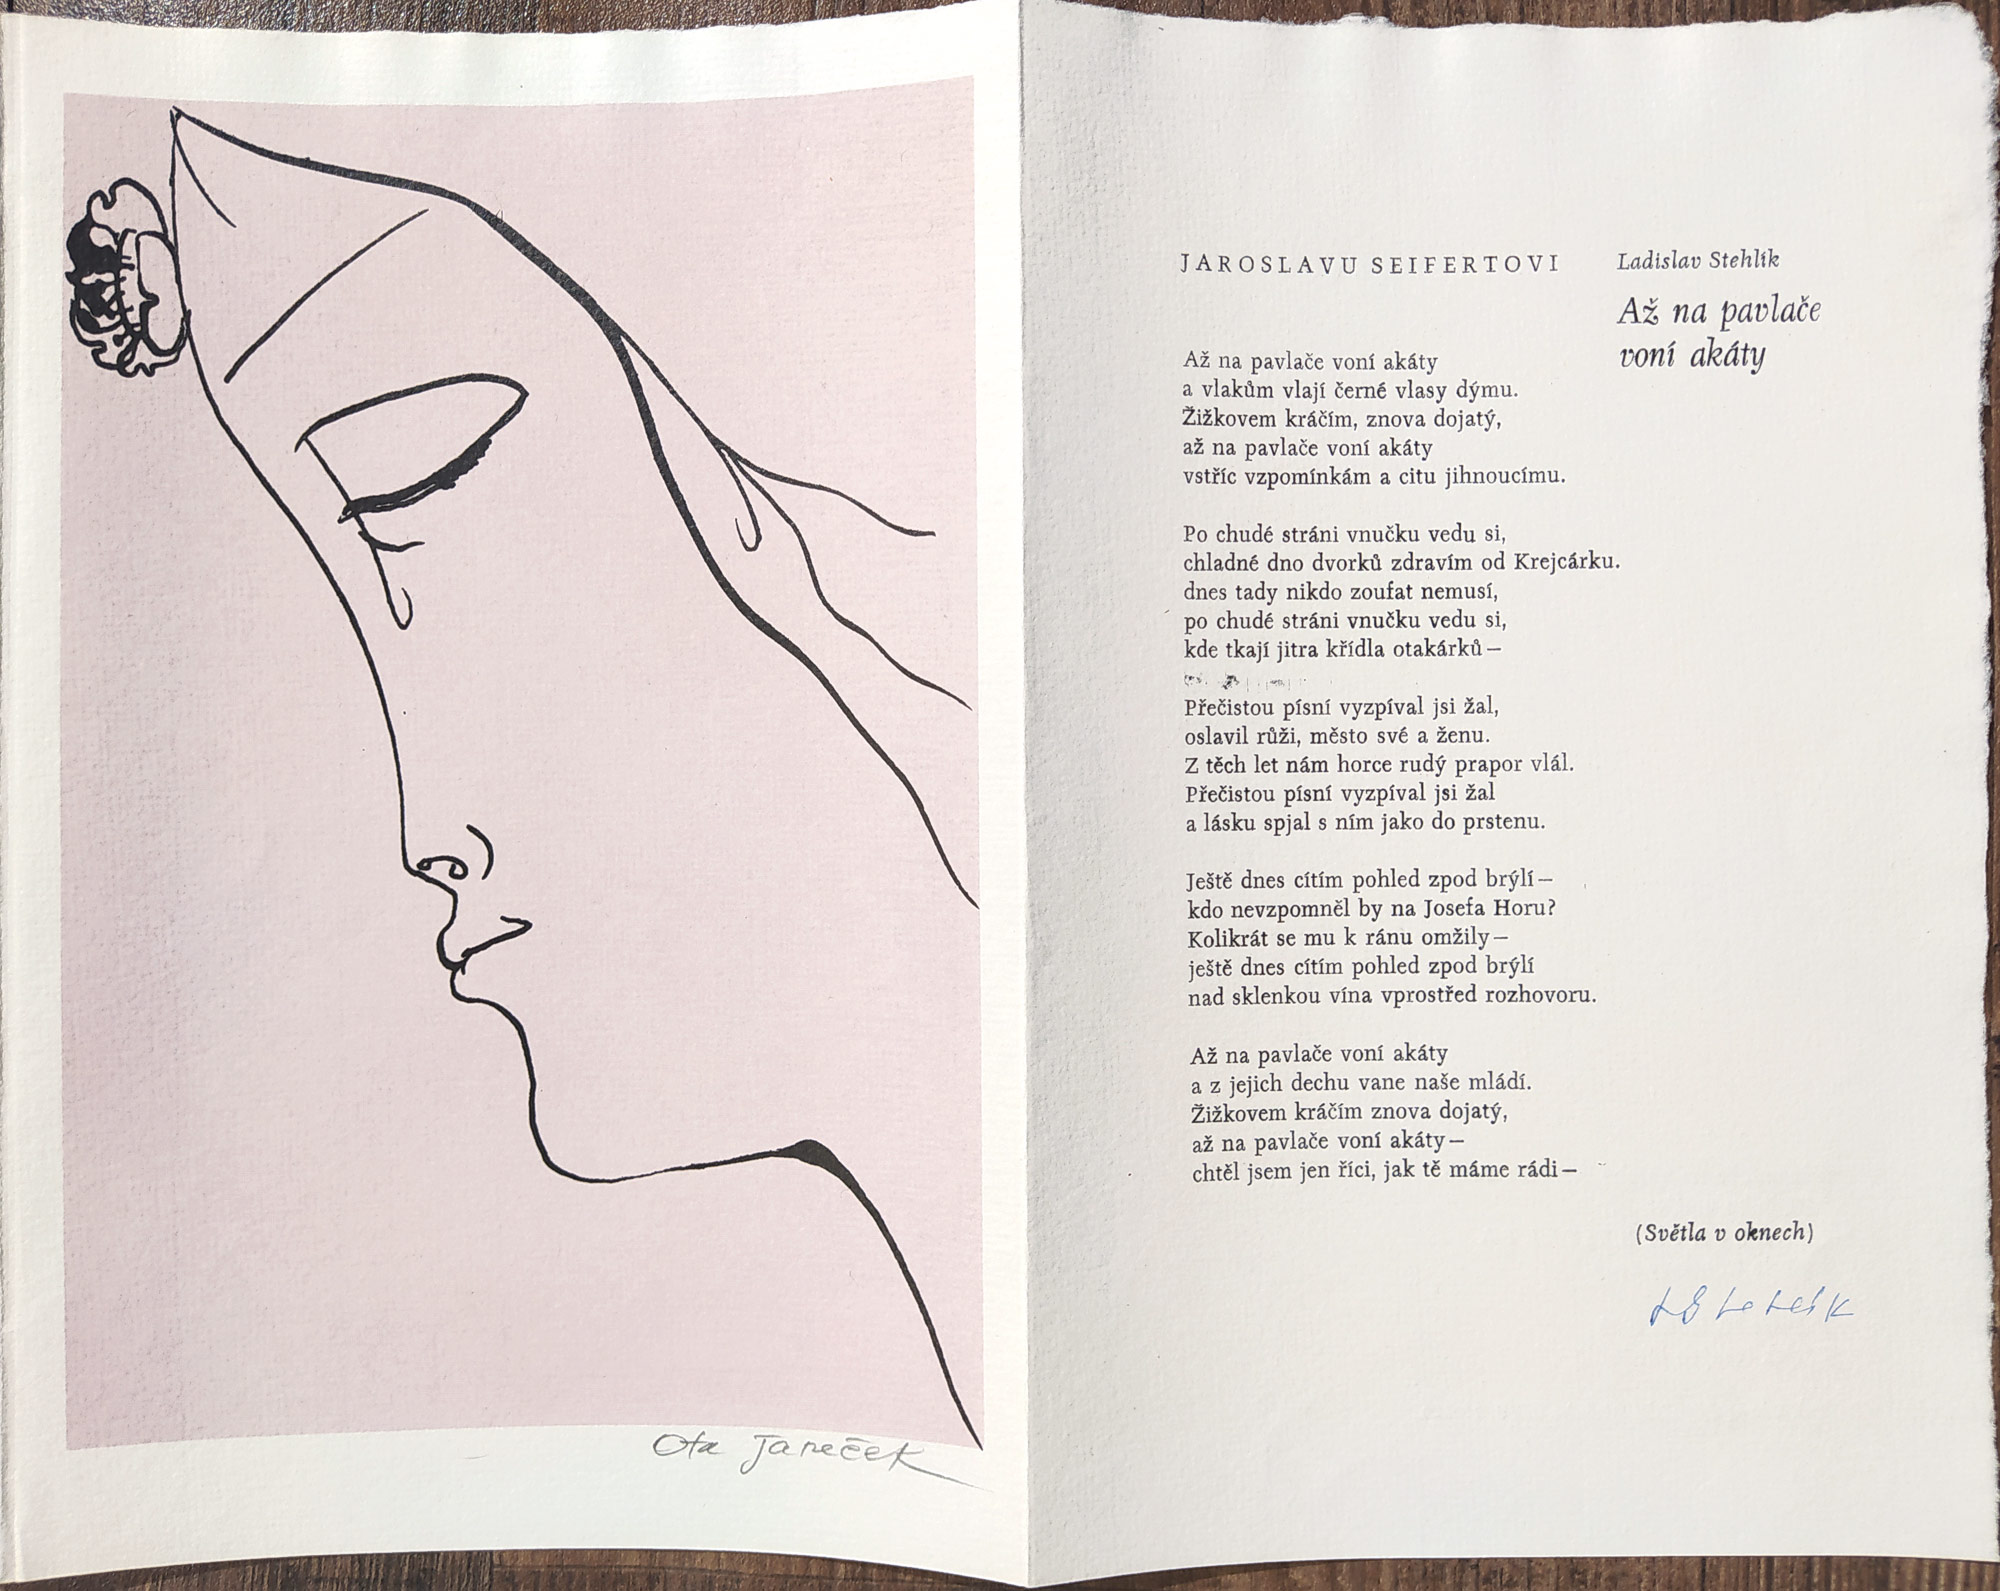 JAROSLAVU SEIFERTOVI
Ladislav Stehlík
Až na pavlače
voní akáty
Až na pavlače voní akáty
a vlakům vlají černé vlasy dýmu.
Žižkovem kráčím, znova dojatý,
až na pavlače voní akáty
vstříc vzpomínkám a citu jihnoucímu.
Po chudé stráni vnučku vedu si,
chladné dno dvorků zdravím od Krejcárku.
dnes tady nikdo zoufat nemusí,
po chudé stráni vnučku vedu si,
kde tkají jitra křídla otakárků–
Přečistou písní vyzpíval jsi žal,
oslavil růži, město své a ženu.
Z těch let nám horce rudý prapor vlál.
Přečistou písní vyzpíval jsi žal
a lásku spjal s ním jako do prstenu.
Ještě dnes cítím pohled zpod brýlí–
kdo nevzpomněl by na Josefa Horu?
Kolikrát se mu k ránu omžily–
ještě dnes cítím pohled zpod brýlí
nad sklenkou vína vprostřed rozhovoru.
Až na pavlače voní akáty
a z jejich dechu vane naše mládí.
Žižkovem kráčím znova dojatý,
až na pavlače voní akáty–
chtěl jsem jen říci, jak tě máme rádi–
(Světla v oknech)
LStehlík
Ota Janeček